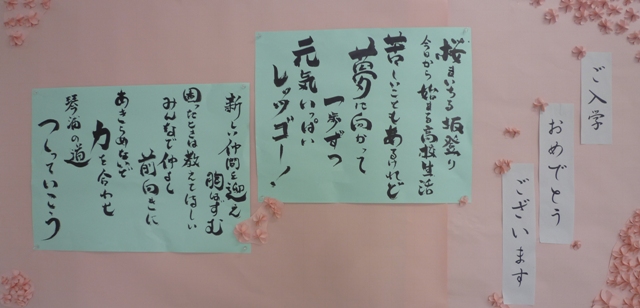 ご入学
おめでとう
ございます
桜まいちる坂登り
今日から始まる高校生活
苦しいこともあるけれど
夢に向かって
一歩ずつ
元気いっぱい
レッツゴー！
新しい仲間を迎え
胸はずむ
困ったときは教えてほしい
みんなで仲よく
前向きに
あきらめないで
力を合わせ
琴浦の道
つくっていこう